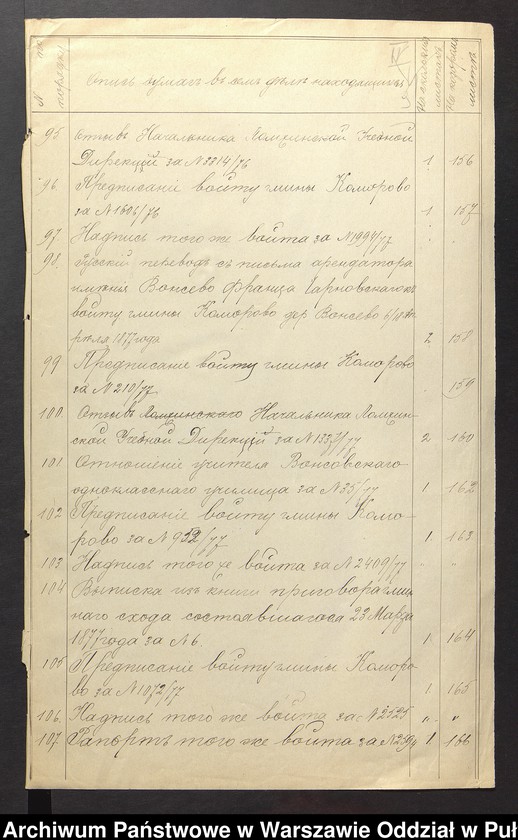 № порядку
Опись бумагъ въ семъ дѣлѣ находящихся
На сколькихъ листахъ
На которомъ листѣ
IV
95 Отзывъ Начальника Ломжинской Учебной
Дирекціи за №3814/76 1 156
96 Предписаніе войту гмины Коморово
за №1606/76 1 157
97 Надпись того же войта за №1994/77 " "
98 Русскій переводъ съ письма арендатора
имѣнія Вонсево Франца Чарновскаго къ
войту гмины Коморово дер Вонсево 6/18 Ап
рѣля 1877 года 2 158
99 Предписаніе войту гмины Коморово
за №210/77 159
100 Отзывъ Ломжинскаго Начальника Ломжин-
ской Учебной Дирекціи за №1337/77 2 160
101 Отношеніе учителя Вонсовскаго
однокласснаго училища за №35/77 1 162
102 Предписаніе войту гмины Комо-
рово за №952/77 1 163
103 Надпись того же войта за №2409/77 " "
104 Выписка изъ книги приговора гмин-
наго схода состоявшагося 23 Марта
1877 года за №6. 1 164
105 Предписаніе войту гмины Коморо
во за №1072/77 1 165
106 Надпись того же войта за №2525 " "
107 Рапортъ того же войта за № 1 166
Archiwum Państwowe w Warszawie Oddział w Puł